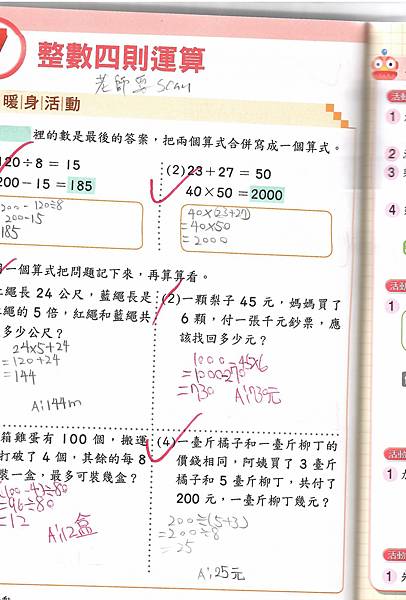 整數四則運算
老師要 scan
暖身活動
裡的數是最後的答案，把兩個算式合併寫成一個算式。
120÷8 = 15
200-15 = 185
200-120÷8
200-15
185
(2) 23+27 = 50
40×50 = 2000
40×(23+27)
=40×50
=2000
一個算式把問題記下來，再算算看。
繩長 24 公尺，藍繩長是
繩的 5 倍，紅繩和藍繩共
多少公尺？
24×5+24
=120+24
=144
A:144m
(2) 一顆梨子 45 元，媽媽買了
6 顆，付一張千元鈔票，應
該找回多少元？
1000-45×6
=1000-270
=730 A:730元
箱雞蛋有 100 個，搬運
打破了 4 個，其餘的每 8
裝一盒，最多可裝幾盒？
(100-4)÷80
=96÷80
=12
A:12盒
(4) 一臺斤橘子和一臺斤柳丁的
價錢相同，阿姨買了 3 臺斤
橘子和 5 臺斤柳丁，共付了
200 元，一臺斤柳丁幾元？
200÷(5+3)
=200÷8
=25
A:25元
活動
1
2
3
4
活動
1
活動
1
活動
1